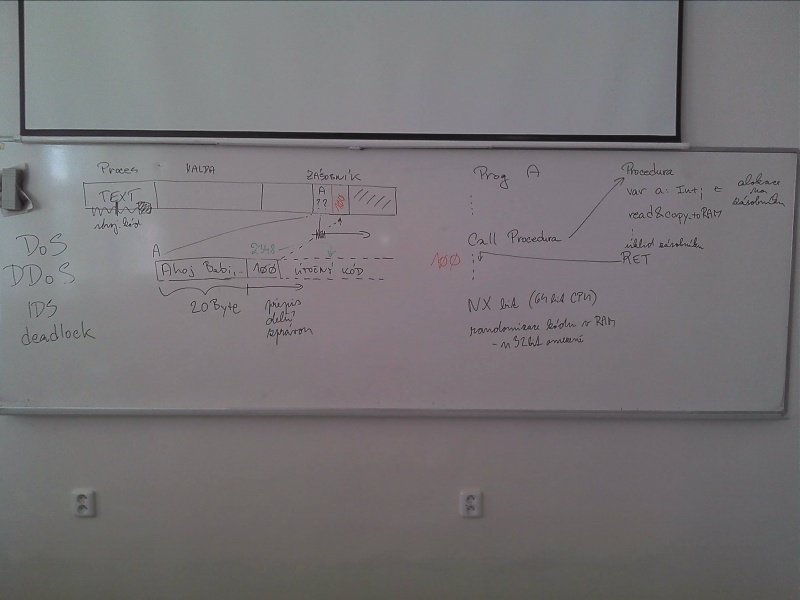 Proces HALDA ZÁSOBNÍK
TEXT A
?? 100
stroj. kód
DoS
DDoS
IDS
deadlock
A 2348
Ahoj Babi,.. 100 ÚTOČNÝ KÓD
20Byte
přepis
delší
zprávou
Prog A
Call Procedura
100
Procedura
var a: Int; ← alokace
na
zásobníku
read&copy.toRAM
úklid zásobník
RET
NX bit (64 bit CPU)
randomizace kódu v RAM
- u 32bit omezení